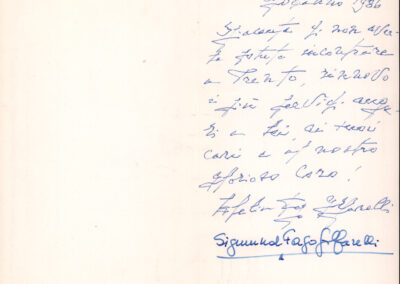 1986
Spiacente di non esser
La potuta incontrare
a Trento, rinnovo
i più fervidi augu-
ri a Lei, ai suoi
cari e al nostro
glorioso Coro!
Sigmund Fago Golfarelli